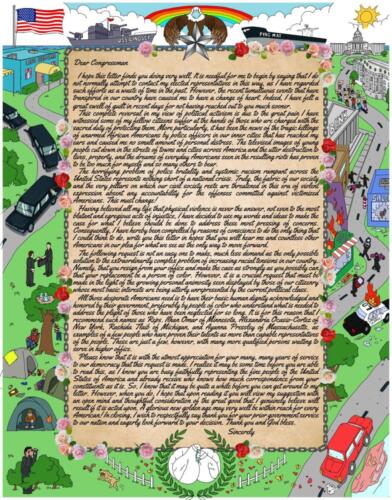 PING MAT
Dear Congressman
I hope this letter finds you doing very well. It is needful for me to begin by saying that I do
not normally attempt to contact my elected representatives in this way, as I have regarded
such efforts as a waste of time in the past. However, the recent tumultuous events that have
transpired in our country have caused me to have a change of heart. Indeed, I have felt a
great swell of guilt in recent days for not having reached out to you much sooner.
This complete reversal in my view of political activism is due to the great pain I have
witnessed some of my fellow citizens suffer at the hands of those who are charged with the
sacred duty of protecting them. More particularly, it has been the news of the tragic killings
of unarmed African Americans by police officers in our inner cities that has reached my
ears and caused me no small amount of personal distress. The televised images of young
people cut down in the streets of towns and cities across America and the utter destruction to
lives, property, and the dreams of everyday Americans seen in the resulting riots has proven
to be too much for myself and so many others to bear.
The horrifying problem of police brutality and systemic racism rampant across the
United States represents nothing short of a national crisis. Truly, the fabric of our society
and the very pillars on which our civil society rests are threatened in this era of violent
oppression absent any accountability for the offenses committed against victimized
Americans. This must change.
Having believed all my life that physical violence is never the answer, not even to the most
blatant and egregious acts of injustice, I have decided to use my words and ideas to make the
case for what I believe should be done to address these most pressing of concerns.
Consequently, I have hereby been compelled by reasons of conscience to do the only thing that
I could think to do, write you this letter in hopes that you will hear me and countless other
Americans in our plea for what we see as the only way to move forward.
The following request is not an easy one to make, much less demand as the only possible
solution to the extraordinarily complex problem of increasing racial tensions in our country.
Namely, that you resign from your office and make the case as strongly as you possibly can
that your replacement be a person of color. However, it is a crucial request that must be
made in the light of the growing personal animosity seen displayed by those of our citizenry
whose most basic interests are being utterly unrepresented by the current political class.
All those desperate Americans need is to have their basic human dignity acknowledged and
honored by their government, preferably by people of color who understand what is needed to
address the plight of those who have been neglected for so long. It is for this reason that I
recommend such names as Reps. Ilhan Omar of Minnesota, Alexandria Ocasio-Cortez of
New York, Rashida Tlaib of Michigan, and Ayanna Pressley of Massachusetts, as
examples of a few people who have proven their talents as more than capable representatives
of the people. These are just a few, however, with many more qualified persons waiting to
serve in higher office.
Please know that it is with the utmost appreciation for your many, many years of service
to our democracy that this request is made. I realize it may be some time before you are able
to read this, as I know you are busy faithfully representing the fine people of the United
States of America and already receive who knows how much correspondence from your
constituents as it is. So, I know that it may be quite a while before you can get around to my
letter. However, when you do, I hope that upon reading it you will view my suggestion with
an open mind and thoughtful consideration of the great good that I genuinely believe will
result if it is acted upon. A glorious new golden age may very well be within reach for every
American! In closing, I wish to respectfully say thank you for your prior government service
to our nation and eagerly look forward to your decision. Thank you and God bless.
Sincerely